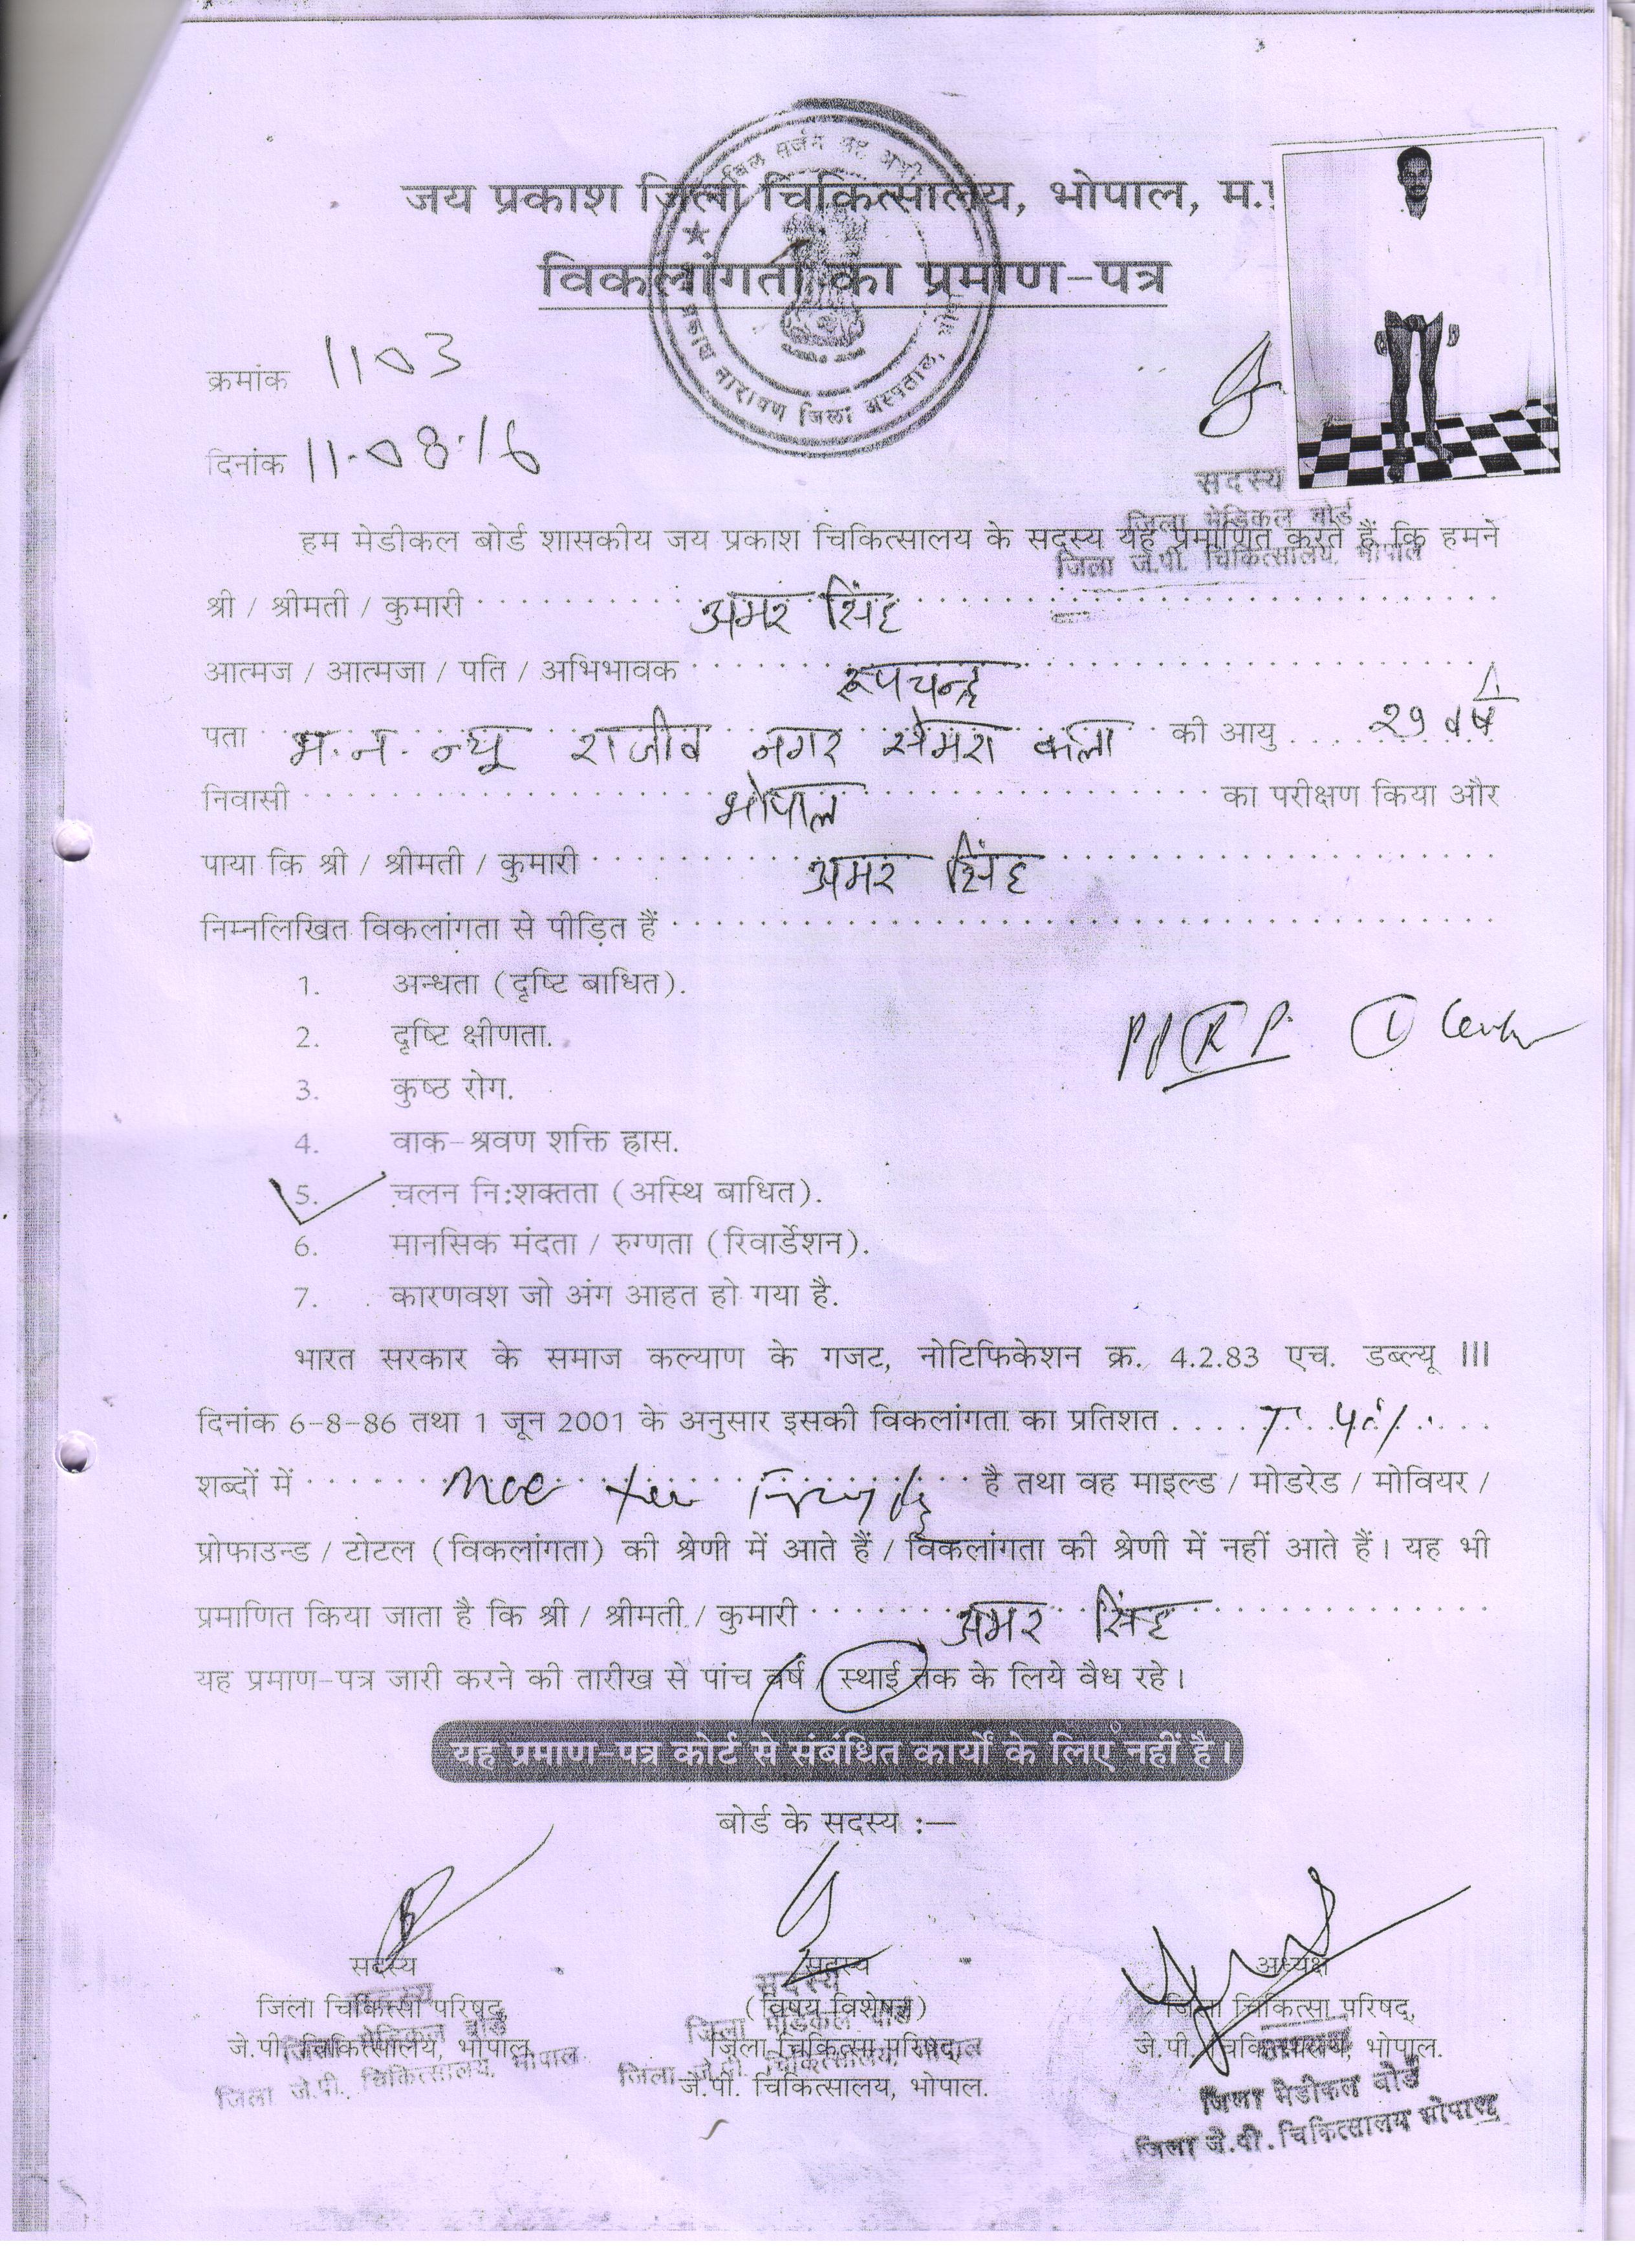 जय प्रकाश जिला चिकित्सालय, भोपाल, म.प्र
विकलांगता का प्रमाण-पत्र
क्रमांक 1103
दिनांक 11.08.16
सदस्य
जिला मेडिकल बोर्ड
जिला जे.पी. चिकित्सालय, भोपाल
हम मेडीकल बोर्ड शासकीय जय प्रकाश चिकित्सालय के सदस्य यह प्रमाणित करते हैं कि हमने
श्री / श्रीमती / कुमारी अमर सिंह
आत्मज / आत्मजा / पति / अभिभावक रूपचन्द्र
पता म.न. न्यू राजीव नगर सेमरा कला की आयु 29 वर्ष
निवासी भोपाल का परीक्षण किया और
पाया कि श्री / श्रीमती / कुमारी अमर सिंह
निम्नलिखित विकलांगता से पीड़ित हैं
1. अन्धता (दृष्टि बाधित).
2. दृष्टि क्षीणता.
3. कुष्ठ रोग.
4. वाक-श्रवण शक्ति ह्रास.
5. चलन नि:शक्तता (अस्थि बाधित).
6. मानसिक मंदता / रुग्णता (रिवार्डेशन).
7. कारणवश जो अंग आहत हो गया है.
भारत सरकार के समाज कल्याण के गजट, नोटिफिकेशन क्र. 4.2.83 एच. डब्ल्यू III
दिनांक 6-8-86 तथा 1 जून 2001 के अनुसार इसकी विकलांगता का प्रतिशत 40%
शब्दों में है तथा वह माइल्ड / मोडरेड / मोवियर /
प्रोफाउन्ड / टोटल (विकलांगता) की श्रेणी में आते हैं / विकलांगता की श्रेणी में नहीं आते हैं। यह भी
प्रमाणित किया जाता है कि श्री / श्रीमती / कुमारी अमर सिंह
यह प्रमाण-पत्र जारी करने की तारीख से पांच वर्ष / स्थाई तक के लिये वैध रहे।
यह प्रमाण-पत्र कोर्ट से संबंधित कार्यों के लिए नहीं है।
बोर्ड के सदस्य :—
सदस्य सदस्य अध्यक्ष
जिला चिकित्सा परिषद्, (विषय विशेषज्ञ) जिला चिकित्सा परिषद्,
जे.पी. चिकित्सालय, भोपाल जिला चिकित्सा परिषद्, जे.पी. चिकित्सालय, भोपाल.
जे.पी. चिकित्सालय, भोपाल.
जिला जे.पी. चिकित्सालय, भोपाल
जिला मेडीकल बोर्ड
जिला जे.पी. चिकित्सालय भोपाल